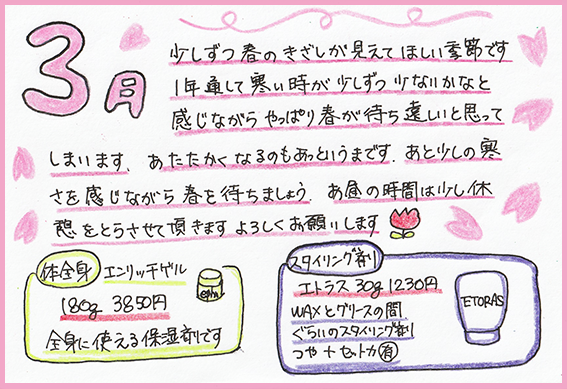 3月
少しずつ春のきざしが見えてほしい季節です
1年通して寒い時が少しずつ少ないかなと
感じながらやっぱり春が待ち遠しいと思って
しまいます、あたたかくなるのもあっというまです、あと少しの寒
さを感じながら春を待ちましょう、お昼の時間は少し休
憩をとらさせて頂きますよろしくお願いします
体全身 エンリッチゲル
180g 3850円
全身に使える保湿剤です
スタイリング剤
エトラス 30g 1230円
WAXとグリースの間
ぐらいのスタイリング剤
つや+セット力有
ETORAS